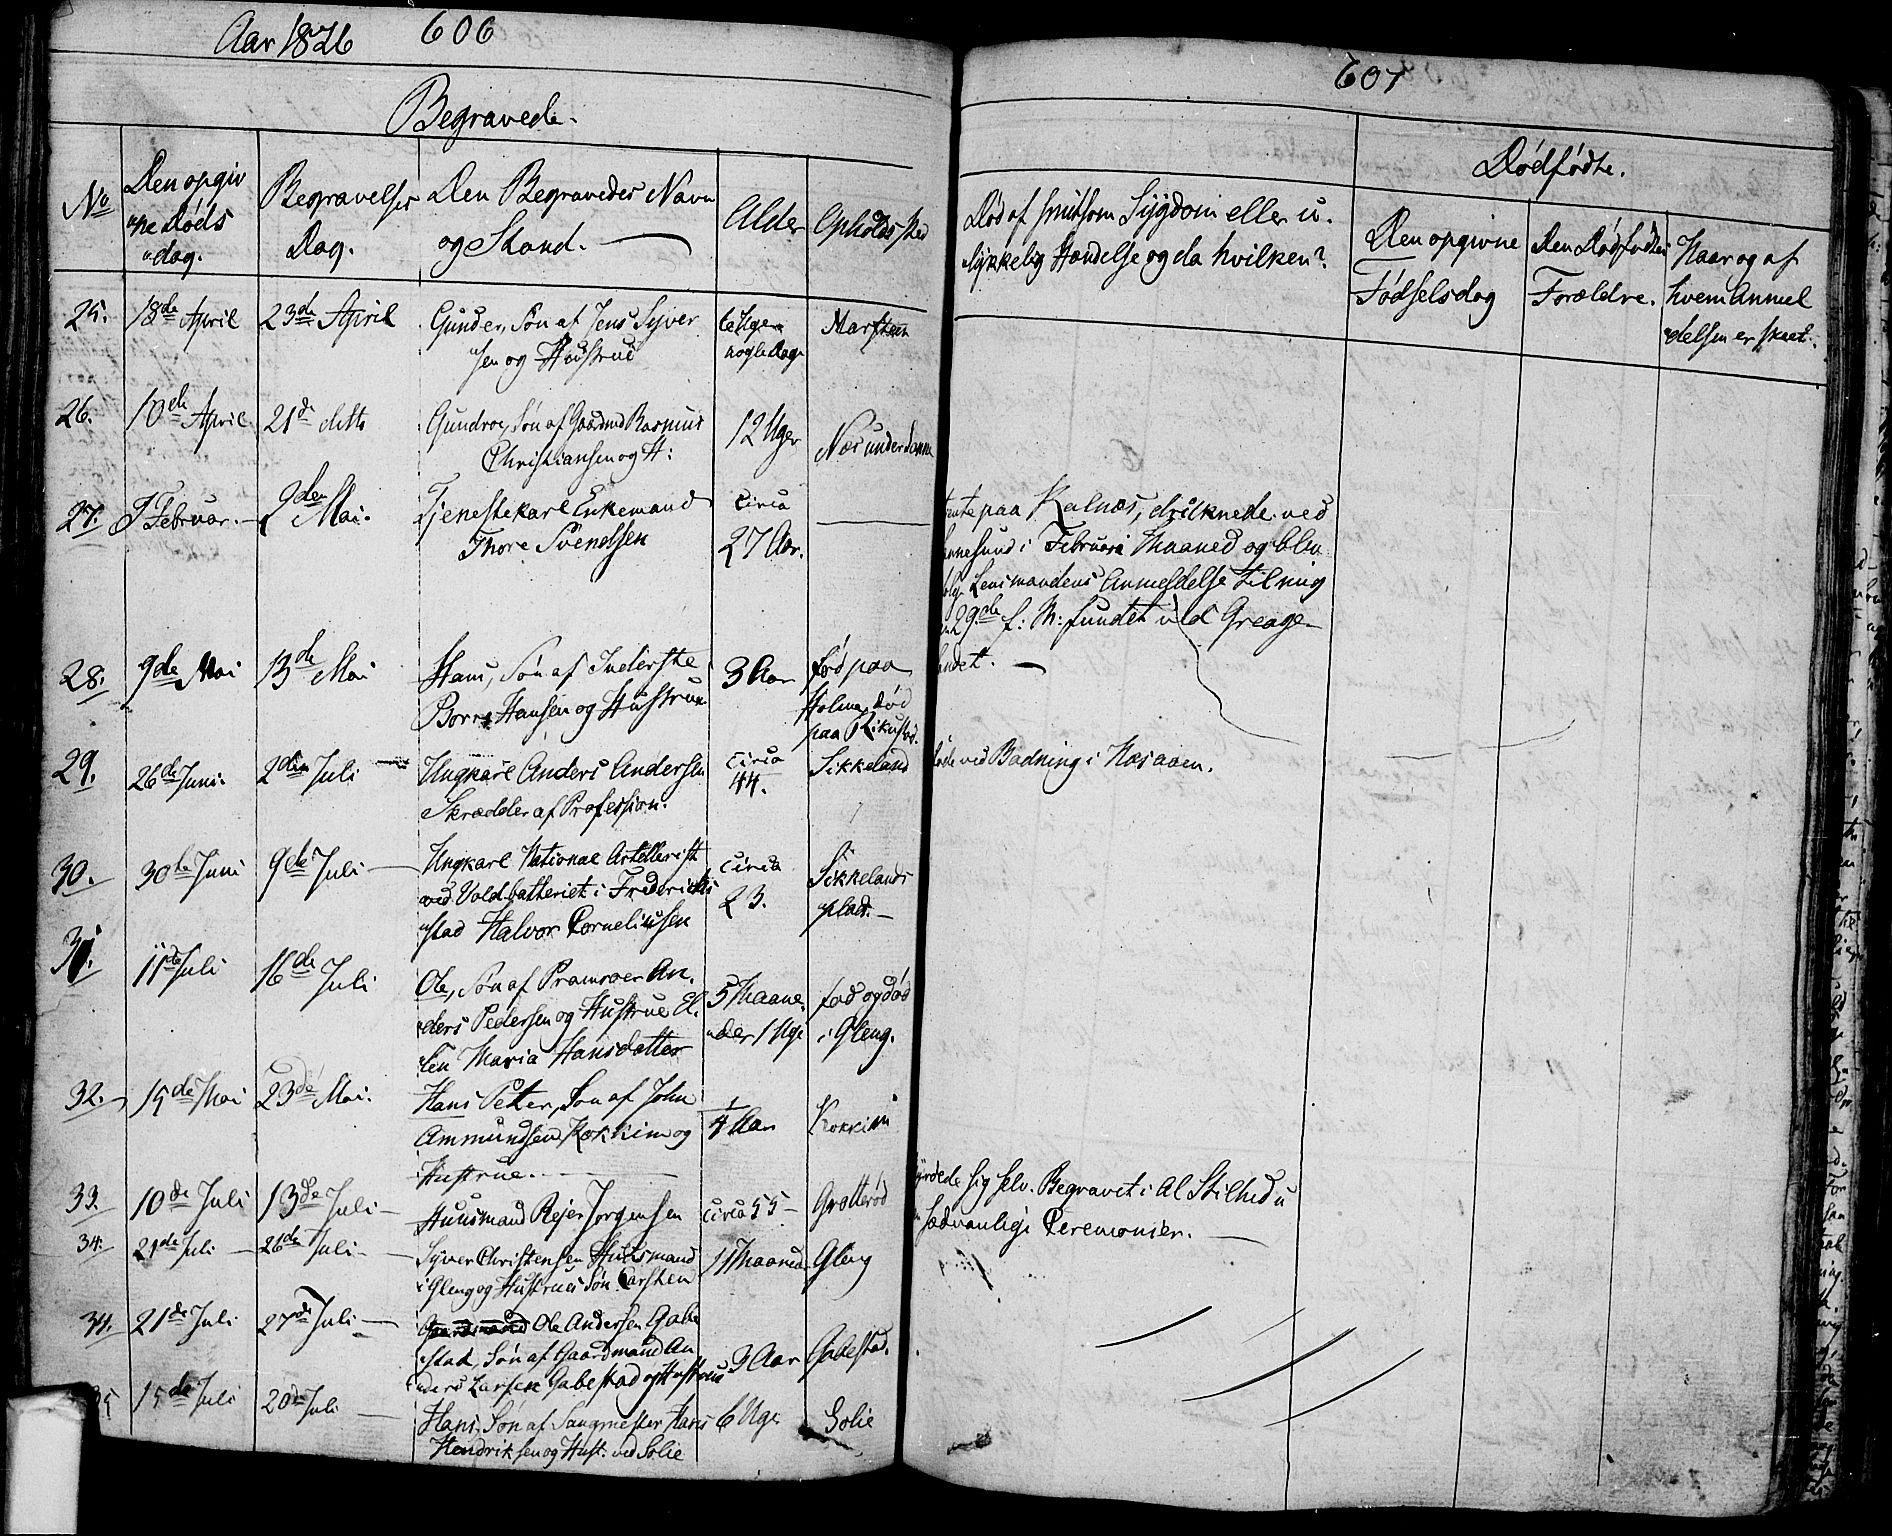 Aar 1826
606
Begravede.
No
Den opgiv
ne Døds
dag.
Begravelses
Dag.
Den Begravedes Navn
og Stand.
Alder
Opholdssted
25. 18de April 23de April Gunder, Søn af Jens Syver
sen og Hustrue
Uger
nogle Dage
26. 10de April 21de ditto Søn af Gaardmd Rasmus
Christiansen og H:
12 Uger
Næs under
27. Februar. 2den Mai. Tjenestekarl Enkemand
Thore Svendsen
circa
27 Aar.
28. 9de Mai 13de Mai Hans, Søn af Inderste
Borre Hansen og Hustrue
3 Aar
fød paa
Holmen død
paa
29. 26de Juni 2den Juli Ungkarl Anders Andersen
Skrædder af Profession.
circa
44.
Sikkeland
30. 30de Juni 9de Juli Ungkarl National Artellerist
ved Voldbatteriet i Fredericks
stad Halvor Corneliusen
circa
23.
Sikkelands
plads.
31. 11de Juli 16de Juli Ole, Søn af Pramroer An
ders Pedersen og Hustrue El
len Maria Hansdatter
5 Maane
der 1 Uge
fød og død
i Gleng.
32. 15de Mai 23de Mai. Hans Peter, Søn af John
Ammundsen Kokkim og
Hustrue.
1/4 Aar
Kokkim
33. 10de Juli 13de Juli Huusmand Rejer Jørgensen circa 55 Grotterød
34. 21de Juli 26de Juli Syver Christensen Huusmand
i Gleng og Hustrues Søn Carsten
11 Maaned Gleng
34. 21de Juli 27de Juli Gaardmand Ole Andersen Gabe
stad, Søn af Gaardmand An
ders Larsen Gabestad og Hustrues
3 Aar Gabestad.
35 15de Juli 20de Juli Hans, Søn af Saugmester Hans
Hendriksen og Hust. ved Solie
6 Uge Solie
607
Død af smitsom Sygdom eller u.
lykkelig Hændelse og da hvilken?
Dødfødte.
Den opgivne
Fødselsdag
Den Dødfødtes
Forældre.
Naar og af
hvem Anmel
delsen er skeet.
paa Kalnæs, druknede ved
nnesund i Februari Maaned og blev
Lensmandens Anmeldelse til mig
29de f: M: fundet ved Greage
andet.
døde ved Badning i Næs aaen.
myrdede sig selv. Begravet i al Stilhed u
Sædvanlige Ceremonier.